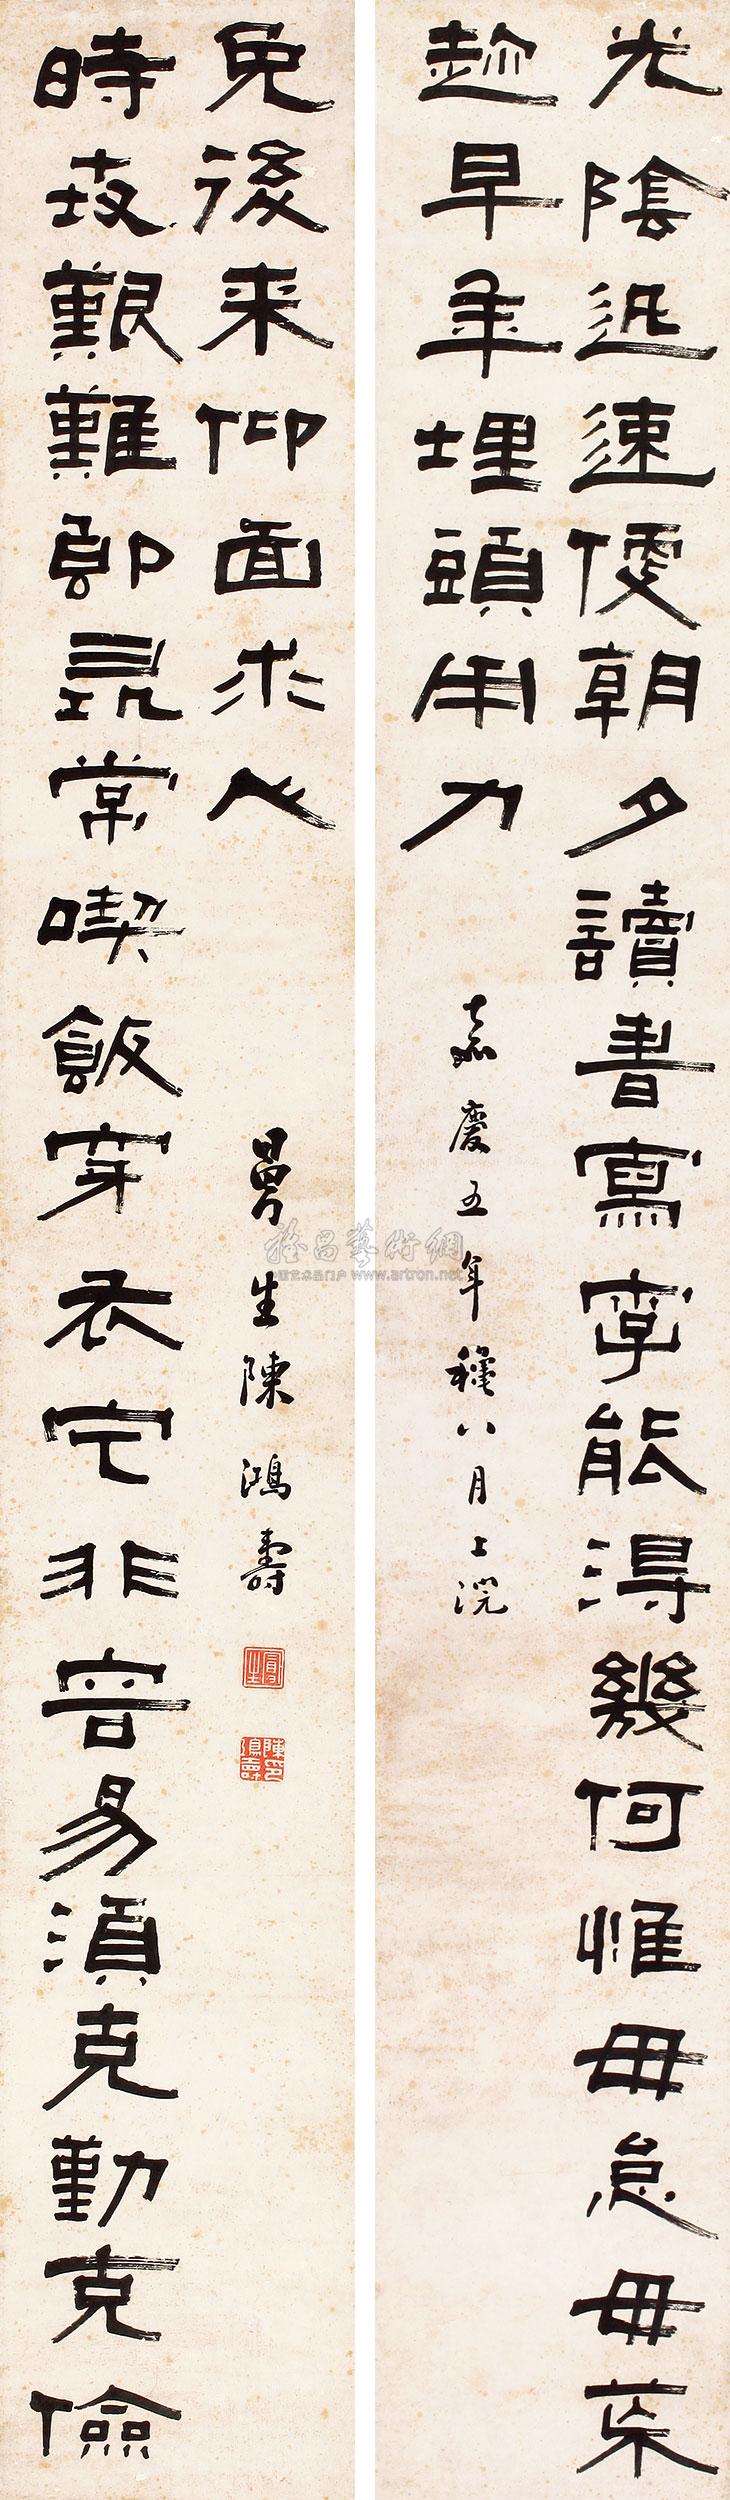 光陰迅速便朝夕讀書寫字能得幾何惟毋怠毋荒
趁早年埋頭用力
嘉慶五年穐八月上浣
時艱難即尋常喫飯穿衣定非容易須克勤克儉
免後來仰面求人
曼生陳鴻壽
曼生
陳印鴻壽
雅昌藝術網
www.artron.net